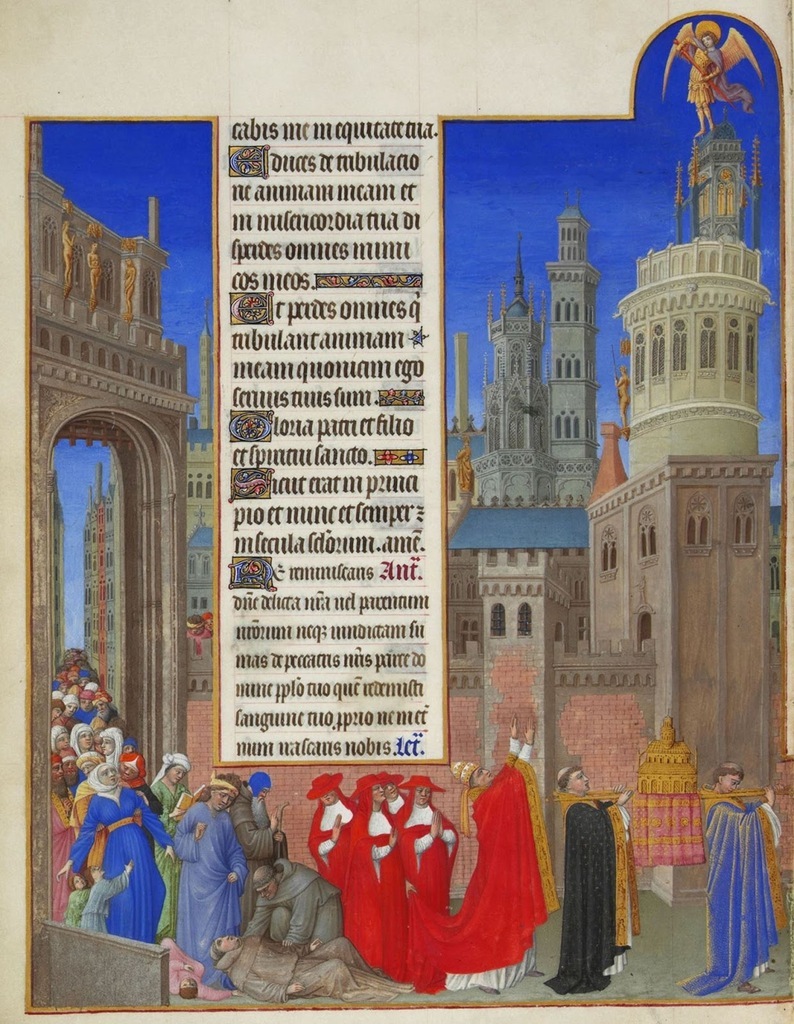 cabis me in equitate tua.
Educes de tribulacio
ne animam meam et
in misericordia tua di
sperdes omnes inimi
cos meos.
Et perdes omnes q̄
tribulant animam
meam quoniam ego
seruus tuus sum.
Gloria patri et filio
et spiritui sancto.
Sicut erat in princi
pio et nunc et semper ⁊
in secula sc̄lorum. amē.
Ne reminiscaris Ant̄.
dn̄e delicta nr̄a uel parentum
nr̄orum neq̄ uindictam su
mas de peccatis nr̄is parce do
mine pp̄lo tuo quē redemisti
sanguine tuo p̄prio ne in et̄
num irascaris nobis. Let̄.